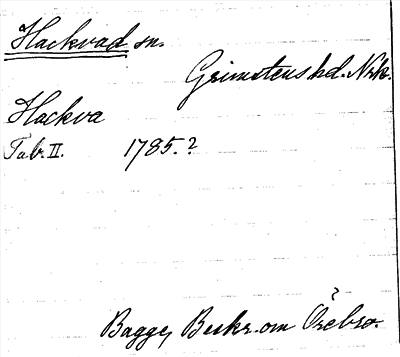 Hackvad sn.
Grimstens hd. Nrk.
Hackva
Tab. II. 1785.?
?
Bagge, Beskr. om Örebro.